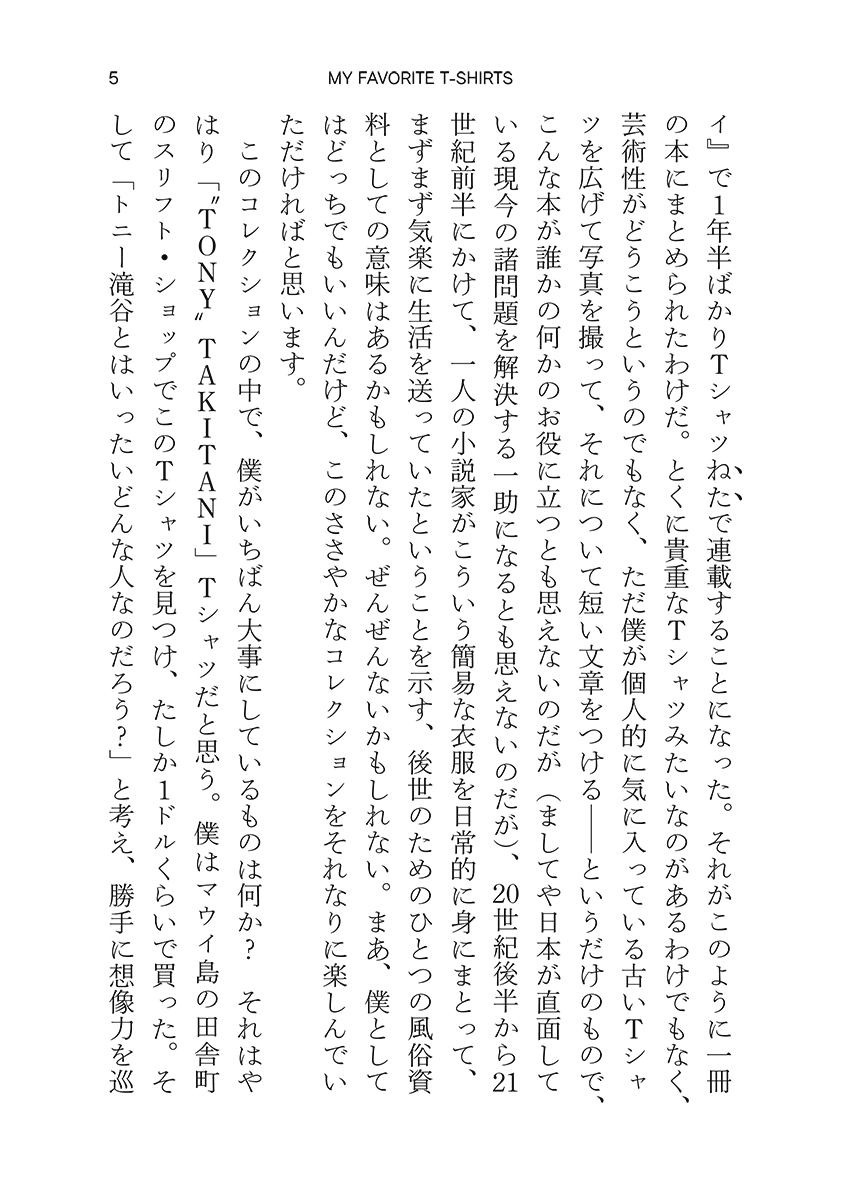 5
MY FAVORITE T-SHIRTS
ィ』で1年半ばかりTシャツねたで連載することになった。それがこのように一冊
の本にまとめられたわけだ。とくに貴重なTシャツみたいなのがあるわけでもなく、
芸術性がどうこうというのでもなく、ただ僕が個人的に気に入っている古いTシャ
ツを広げて写真を撮って、それについて短い文章をつける——というだけのもので、
こんな本が誰かの何かのお役に立つとも思えないのだが（ましてや日本が直面して
いる現今の諸問題を解決する一助になるとも思えないのだが）、20世紀後半から21
世紀前半にかけて、一人の小説家がこういう簡易な衣服を日常的に身にまとって、
まずまず気楽に生活を送っていたということを示す、後世のためのひとつの風俗資
料としての意味はあるかもしれない。ぜんぜんないかもしれない。まあ、僕として
はどっちでもいいんだけど、このささやかなコレクションをそれなりに楽しんでい
ただければと思います。
　このコレクションの中で、僕がいちばん大事にしているものは何か？　それはや
はり「〝TONY〟TAKITANI」Tシャツだと思う。僕はマウイ島の田舎町
のスリフト・ショップでこのTシャツを見つけ、たしか1ドルくらいで買った。そ
して「トニー滝谷とはいったいどんな人なのだろう？」と考え、勝手に想像力を巡